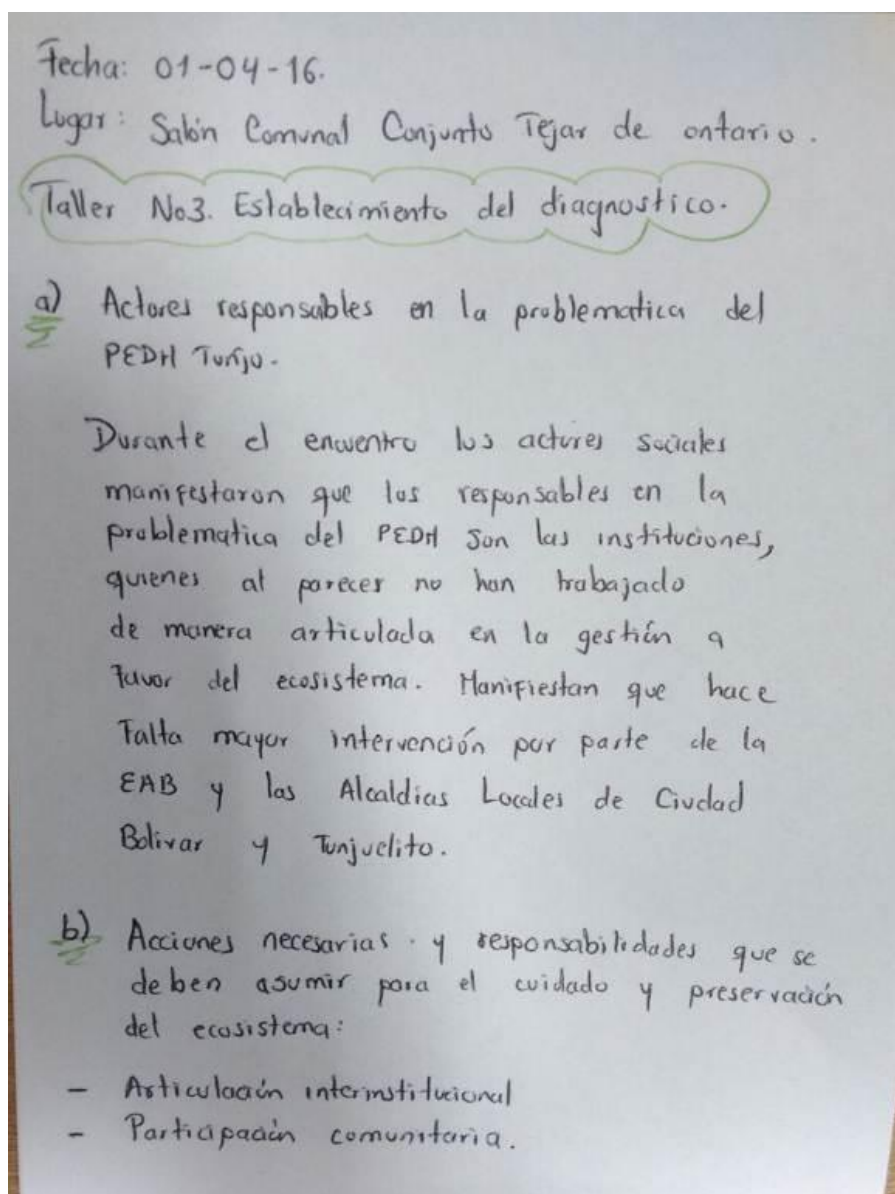 Fecha: 01-04-16.
Lugar: Salón Comunal Conjunto Tejar de ontario.
Taller No3. Establecimiento del diagnostico.
a) Actores responsables en la problematica del
PEDH Tunjo.
Durante el encuentro los actores sociales
manifestaron que los responsables en la
problematica del PEDH son las instituciones,
quienes al parecer no han trabajado
de manera articulada en la gestión a
favor del ecosistema. Manifiestan que hace
falta mayor intervención por parte de la
EAB y las Alcaldias Locales de Ciudad
Bolivar y Tunjuelito.
b) Acciones necesarias y responsabilidades que se
deben asumir para el cuidado y preservación
del ecosistema:
- Articulación interinstitucional
- Participación comunitaria.